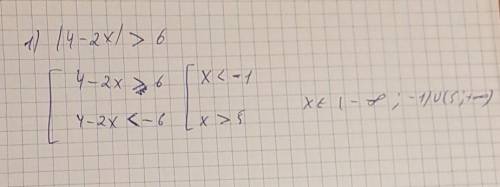 1) |4-2x| > 6
[ 4-2x > 6 [ x < -1
4-2x < -6 x > 5
x ∈ (-∞; -1)∪(5; +∞)